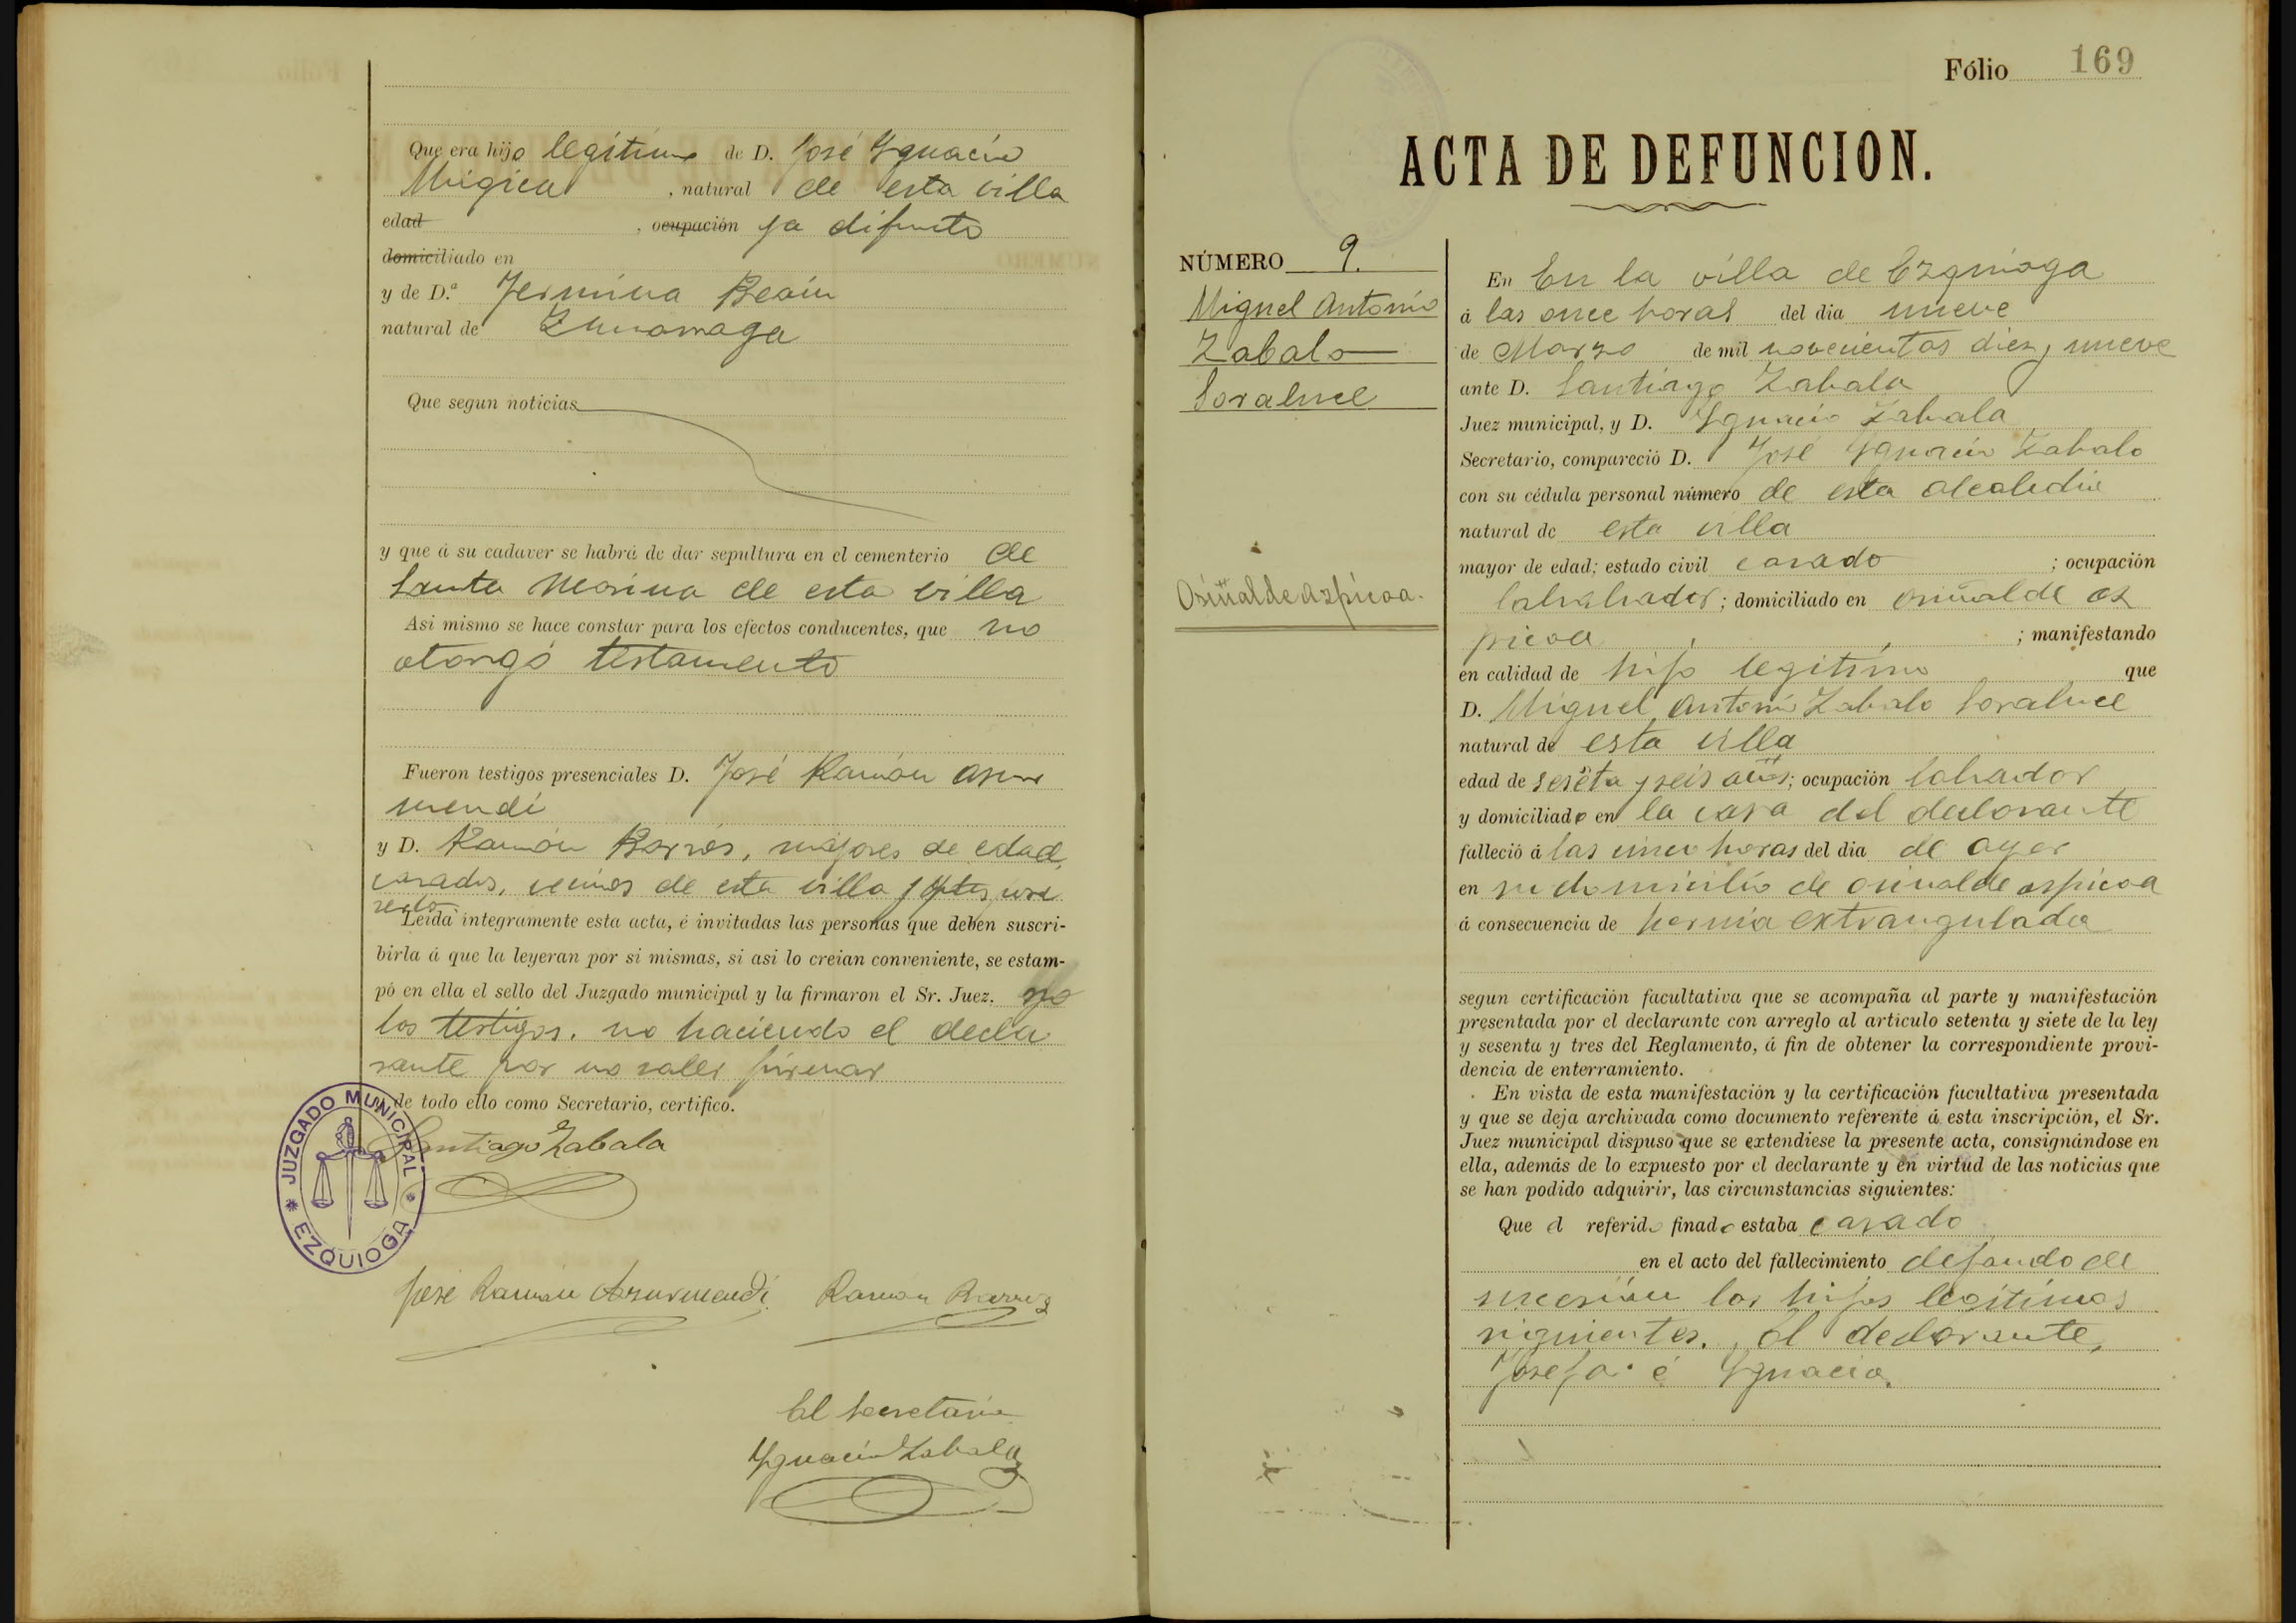 Que era hijo legitimo de D. José Ygnacio
Mugica , natural de esta villa
edad , ocupación ya difunto
domiciliado en
y de D.ª Jermina Beain
natural de Zumarraga
Que segun noticias
y que á su cadaver se habrá de dar sepultura en el cementerio de
Santa Marina de esta villa
Asi mismo se hace constar para los efectos conducentes, que no
otorgó testamento
Fueron testigos presenciales D. José Ramón Azur
mendi
y D. Ramón Barros, mayores de edad,
casados, vecinos de esta villa
Leida integramente esta acta, é invitadas las personas que deben suscri-
birla á que la leyeran por si mismas, si asi lo creian conveniente, se estam-
pó en ella el sello del Juzgado municipal y la firmaron el Sr. Juez, y
los testigos, no haciendo el decla
rante por no saber firmar
de todo ello como Secretario, certifico.
Santiago Zabala
JUZGADO MUNICIPAL * EZQUIOGA *
José Ramón Azurmendi Ramón Barros
El Secretario
Ygnacio Zabala
Fólio 169
ACTA DE DEFUNCION.
NÚMERO 9.
Miguel Antonio
Zabalo
Soraluce
Osiñaldeazpicoa.
En En la villa de Ezquioga
á las once horas del dia nueve
de Marzo de mil novecientos diez y nueve
ante D. Santiago Zabala
Juez municipal, y D. Ygnacio Zabala
Secretario, compareció D. José Ygnacio Zabalo
con su cédula personal número de esta alcaldia
natural de esta villa
mayor de edad; estado civil casado ; ocupación
labrador ; domiciliado en osiñalde az
picoa ; manifestando
en calidad de hijo legitimo que
D. Miguel Antonio Zabalo Soraluce
natural de esta villa
edad de seseta y seis años; ocupación labrador
y domiciliado en la casa del declarante
falleció á las cinco horas del dia de ayer
en su domicilio de osinalde aspicoa
á consecuencia de hernia extrangulada
segun certificación facultativa que se acompaña al parte y manifestación
presentada por el declarante con arreglo al articulo setenta y siete de la ley
y sesenta y tres del Reglamento, á fin de obtener la correspondiente provi-
dencia de enterramiento.
En vista de esta manifestación y la certificación facultativa presentada
y que se deja archivada como documento referente á esta inscripción, el Sr.
Juez municipal dispuso que se extendiese la presente acta, consignándose en
ella, además de lo expuesto por el declarante y en virtud de las noticias que
se han podido adquirir, las circunstancias siguientes:
Que el referido finado estaba casado
en el acto del fallecimiento dejando de
sucesión los hijos legitimos
siguientes. el declarante,
Josefa é Ygnacia.